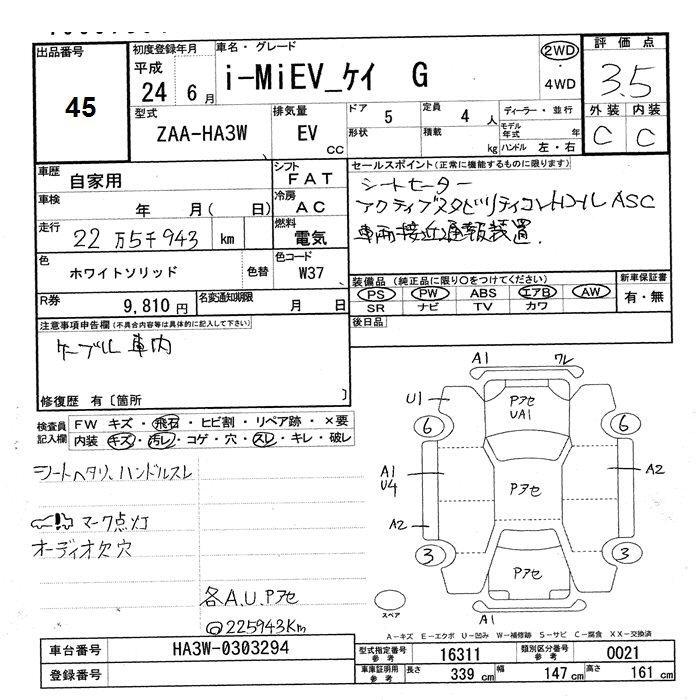 出品番号
45
初度登録年月
平成
24 6月
車名・グレード
i-MiEV_ケイ G
2WD
・
4WD
評価点
3.5
外装 内装
C C
型式
ZAA-HA3W
排気量
EV
CC
ドア 5
定員 4人
形状
積載 kg
ディーラー・並行
モデル年式 年
ハンドル 左・右
車歴
自家用
シフト
FAT
車検
年 月( 日)
冷房
AC
走行
22万5千943 km
燃料
電気
色
ホワイトソリッド
色替
色コード
W37
R券
9,810円
名変通知期限
月 日
セールスポイント(正常に機能するものに限ります)
シートヒーター
アクティブスタビリティコントロールASC
車両接近通報装置.
装備品(純正品に限り○をつけてください)
PS PW ABS エアB AW
SR ナビ TV カワ
新車保証書
有・無
後日品
注意事項申告欄(不具合内容等は具体的に記入して下さい)
ケーブル車内
修復歴 有〔箇所 〕
検査員
記入欄
FW キズ・飛石・ヒビ割・リペア跡・×要
内装 キズ・汚レ・コゲ・穴・スレ・キレ・破レ
シートヘタリ、ハンドルスレ
マーク点灯
オーディオ欠穴
各A.U.Pアセ
@225943Km
A1 ワレ
U1
Pアセ
UA1
6 6
A1
U4
Pアセ
A2
A2
3 3
Pアセ
スペア
A1
A-キズ E-エクボ U-凹み W-補修跡 S-サビ C-腐食 XX-交換済
車台番号
HA3W-0303294
登録番号
型式指定番号
参考
16311
類別区分番号
参考
0021
車庫証明用
参考
長さ 339cm
幅 147cm
高さ 161cm